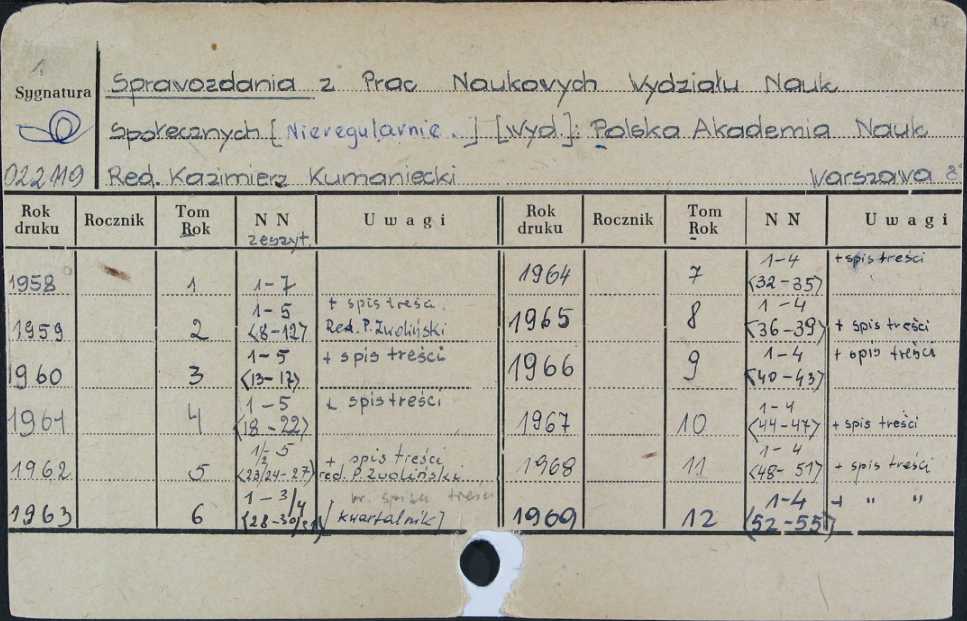 1.
Sygnatura
022119
Sprawozdania z Prac Naukowych Wydziału Nauk
Społecznych [Nieregularnie.] [Wyd.]: Polska Akademia Nauk
Red. Kazimierz Kumaniecki Warszawa 8°
Rok druku Rocznik Tom Rok NN zeszyt. Uwagi
1958 1 1-7
1959 2 1-5 <8-12> + spis treści. Red. P. Zwoliński
1960 3 1-5 <13-17> + spis treści
1961 4 1-5 <18-22> + spis treści
1962 5 1/2 5 <23/24-27> + spis treści red. P. Zwoliński
1963 6 1-3/4 <28-30/31> br. spisu treści [kwartalnik]
Rok druku Rocznik Tom Rok NN Uwagi
1964 7 1-4 <32-35> + spis treści
1965 8 1-4 <36-39> + spis treści
1966 9 1-4 <40-43> + spis treści
1967 10 1-4 <44-47> + spis treści
1968 11 1-4 <48-51> + spis treści
1969 12 1-4 <52-55> + " "